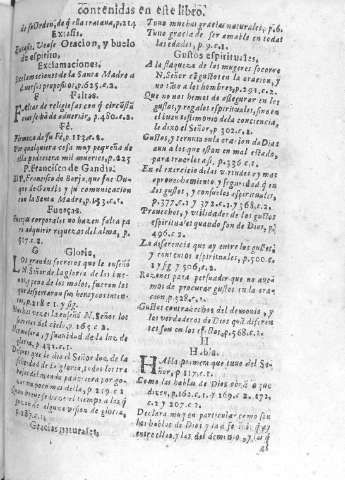 contenidas en este libro.
de su Orden, de q̃ ella trataua, p.214
Extasis.
Extasis. Vease Oracion, y buelo
de espiritu.
Exclamaciones.
Exclamaciones de la Santa Madre a
diuersos propositos, p.625.c.2.
F Faltas.
Faltas de religiosas con q̃
se hã de aduertir, p.480.c.2.
Fè.
Firmeza de su Fè, p.112.c.2.
Por qualquiera cosa muy pequeña de
ella padeciera mil muertes, p.225
P. Francisco de Gandia.
El P. Francisco de Borja, que fue Du-
que de Gandia y su comunicacion
con la Santa Madre, p.143.c.1.
Fuerças.
Fuerças corporales no hazen falta pa-
ra adquirir riquezas del alma, p.
507.c.2.
G Gloria.
Los grandes secretos que le enseñò
N. Señor de la gloria de los bue-
nos, y pena de los malos, fueron los
p.218.c.1. y sig.
Muchas vezes la enseñò N. Señor los
secretos del cielo, p.165.c.2.
Hermosura, y suauidad de la luz de
gloria, p.431.c.1.
Despues que le dio el Señor luz, de la
de la gloria, todos los tra-
bajos del mundo padeciera por go-
zar un poco mas della, p.219.c.1
Quan breue se le haze el tiempo a las q̃
gozan de alguna vision de gloria,
p.287.c.1.
Gracias naturales,
Tuuo muchas gracias naturales, p.6.
Tuuo gracia de ser amable en todas
las edades, p.9.c.1.
Gustos espirituales.
A la flaqueza de las mugeres socorre
N. Señor cõ gustos en la oracion, y
no tãto a los hombres, p.291.c.2.
Que no nos hemos de assegurar en los
gustos, y regalos espirituales, sino en
el buen testimonio dela conciencia,
le dixo el Señor, p.302.c.1.
Gustos, y ternura en la oraciõ da Dios
aun a los que estan en mal estado,
para traerlos a si, p.336.c.1.
En el exercicio de las virtudes ay mas
aprouechamiento, y seguridad q̃ en
los gustos, y consuelos espirituales,
p.371.c.1 y 372.c.1. y 368.c.2.
Prouechos, y vtilidades de los gustos
espirituales quando son de Dios, p.
496.c.2.
La diferencia que ay entre los gustos,
y contentos espirituales, p.500.c.
1. y sig. y 506.c.2.
Razones para persuadir que no aue-
mos de procurar gustos en la ora-
cion, p.528.c.1.
Gustos contrahechos del demonio, y
los verdaderos de Dios quã diferen-
tes son en los efectos, p.568.c.2.
H
Habla.
Habla primera que tuuo del Se-
ñor, p.117.c.1.
Como las hablas de Dios obrã lo que
dizen, p.162.c.1. y 169.c.2. 172.
c.2. y 207.c.2.
Declara muy en particular como son
las hablas de Dios y la dif. q̃ ay
entre ellas, y las del demonio, y las q̃